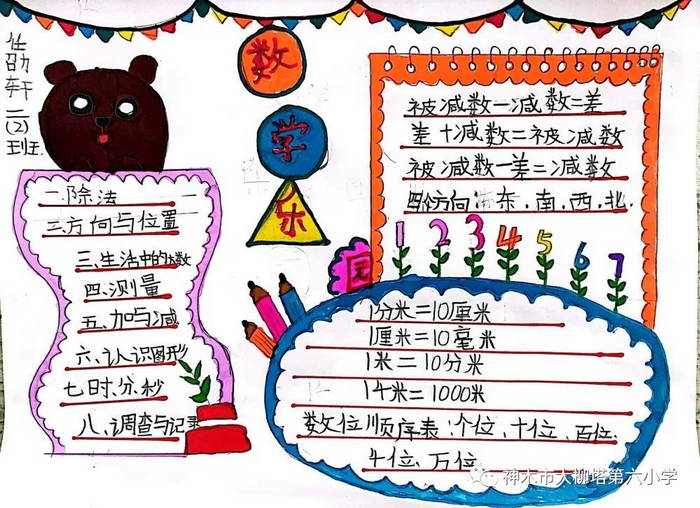 轩
二(2)
班
数
学
乐
园
一.除法
二方向与位置
三.生活中的大数
四.测量
五.加与减
六.认识图形
七时.分.秒
八.调查与记录
被减数一减数=差
差十减数=被减数
被减数一差=减数
四个方向:东.南.西.北.
1 2 3 4 5 6 7
1分米=10厘米
1厘米=10毫米
1米=10分米
1千米=1000米
数位顺序表:个位、十位、百位.
千位、万位
神木市大柳塔第六小学